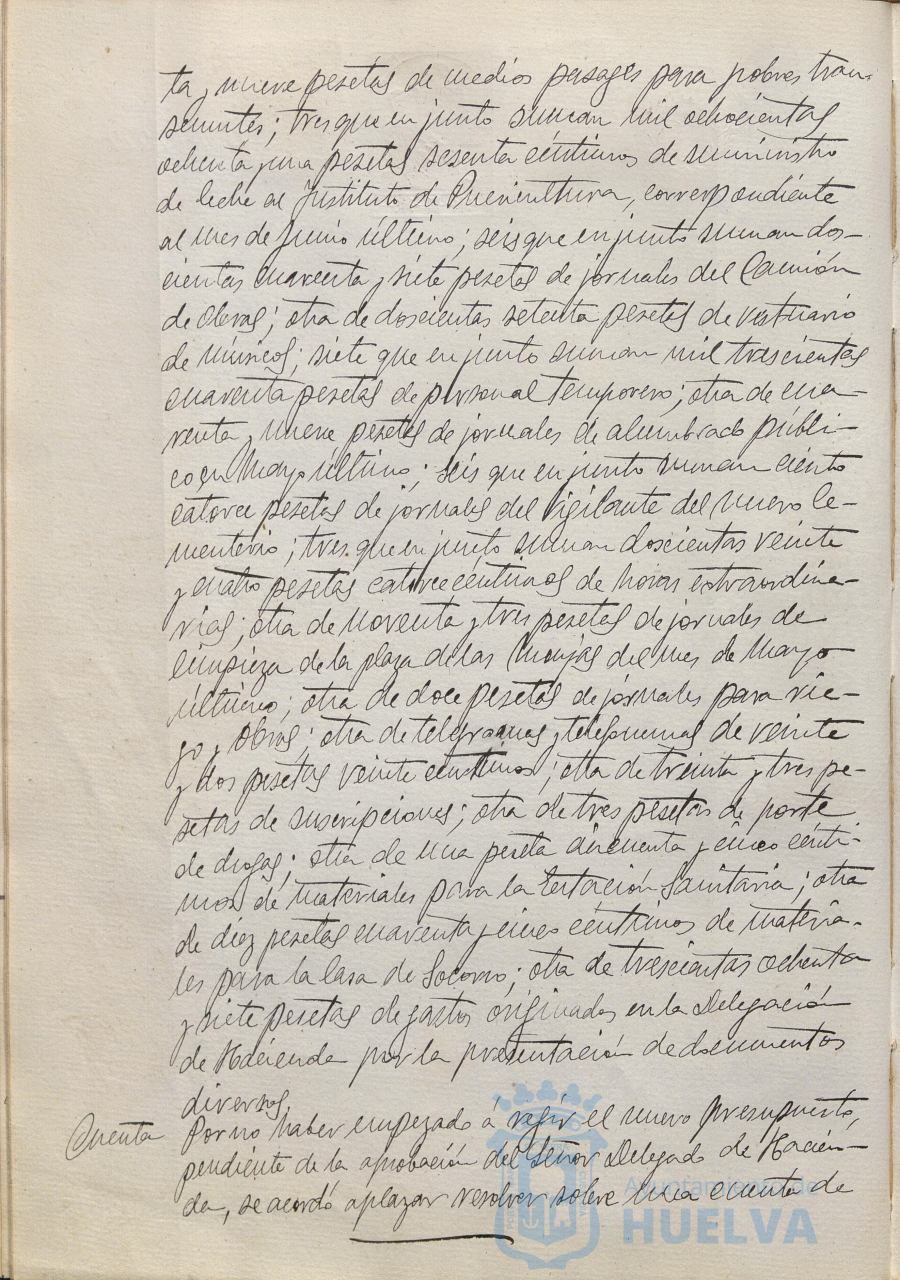 ta y nueve pesetas de medios pasages para pobres tran-
seuntes; tres que en junto suman mil ochocientas
ochenta y una pesetas sesenta céntimos de suministro
de leche al Instituto de Puericultura, correspondiente
al mes de Junio último; seis que en junto suman dos-
cientas cuarenta y siete pesetas de jornales del Camión
de Obras; otra de doscientas setenta pesetas de vestuario
de músicos; siete que en junto suman mil trescientas
cuarenta pesetas de personal temporero; otra de cua-
renta y nueve pesetas de jornales de alumbrado públi-
co en Mayo último; seis que en junto suman ciento
catorce pesetas de jornales del vigilante del nuevo Ce-
menterio; tres que en junto suman doscientas veinte
y cuatro pesetas catorce céntimos de horas extraordina-
rias; otra de noventa y tres pesetas de jornales de
limpieza de la plaza de las Monjas del mes de Mayo
último; otra de doce pesetas de jornales para rie-
go y Obras; otra de telegramas y telefonemas de veinte
y dos pesetas veinte céntimos; otra de treinta y tres pe-
setas de suscripciones; otra de tres pesetas de porte
de drogas; otra de una peseta cincuenta y cinco cénti-
mos de materiales para la Estación Sanitaria; otra
de diez pesetas cuarenta y cinco céntimos de materia-
les para la Casa de Socorro; otra de trescientas ochenta
y siete pesetas de gastos originados en la Delegación
de Hacienda por la presentación de documentos
diversos.
Cuenta Por no haber empezado á regir el nuevo presupuesto,
pendiente de la aprobación del Señor Delegado de Hacien-
da, se acordó aplazar resolver sobre una cuenta de
Ayuntamiento de
HUELVA